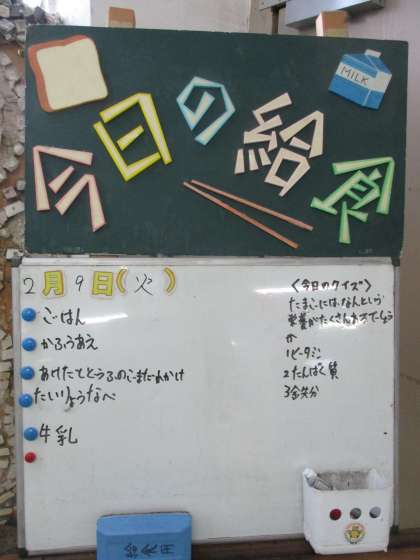 今日の給食
MILK
2月9日(火)
ごはん
からうあえ
あげたてとうふのごまだれかけ
たいりょうなべ
牛乳
〈今日のクイズ〉
たまごには、なんという
栄養がたくさんあるでしょう
か
1ビタミン
2たんぱく質
3鉄分